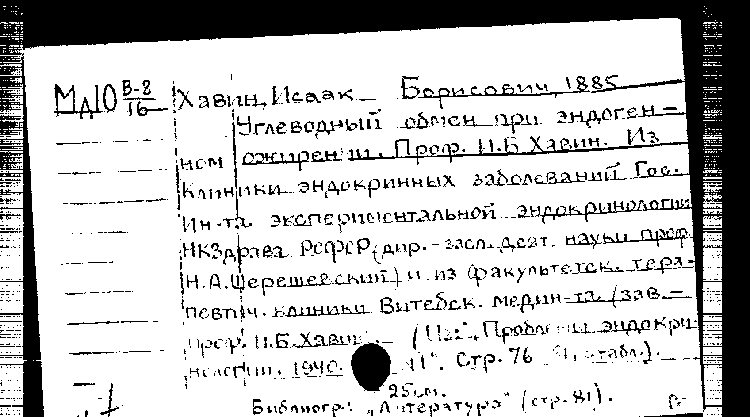 МД10 В-2/16 Хавин, Исаак Борисович, 1885
Углеводный обмен при эндоген-
ном ожирении. Проф. И.Б. Хавин. Из
клиники эндокринных заболеваний Гос.
Ин-та экспериментальной эндокринологии
НКЗдрава РСФСР (дир. - засл. деят. науки проф.
Н.А. Шерешевский) и из факультетск. тера-
певтич. клиники Витебск. медин-та (зав. -
проф. И.Б. Хавин). (Из: "Проблемы эндокри-
нологии. 1940. Стр. 76 81, с табл.).
25 см.
Библиогр: "Литература" (стр. 81).